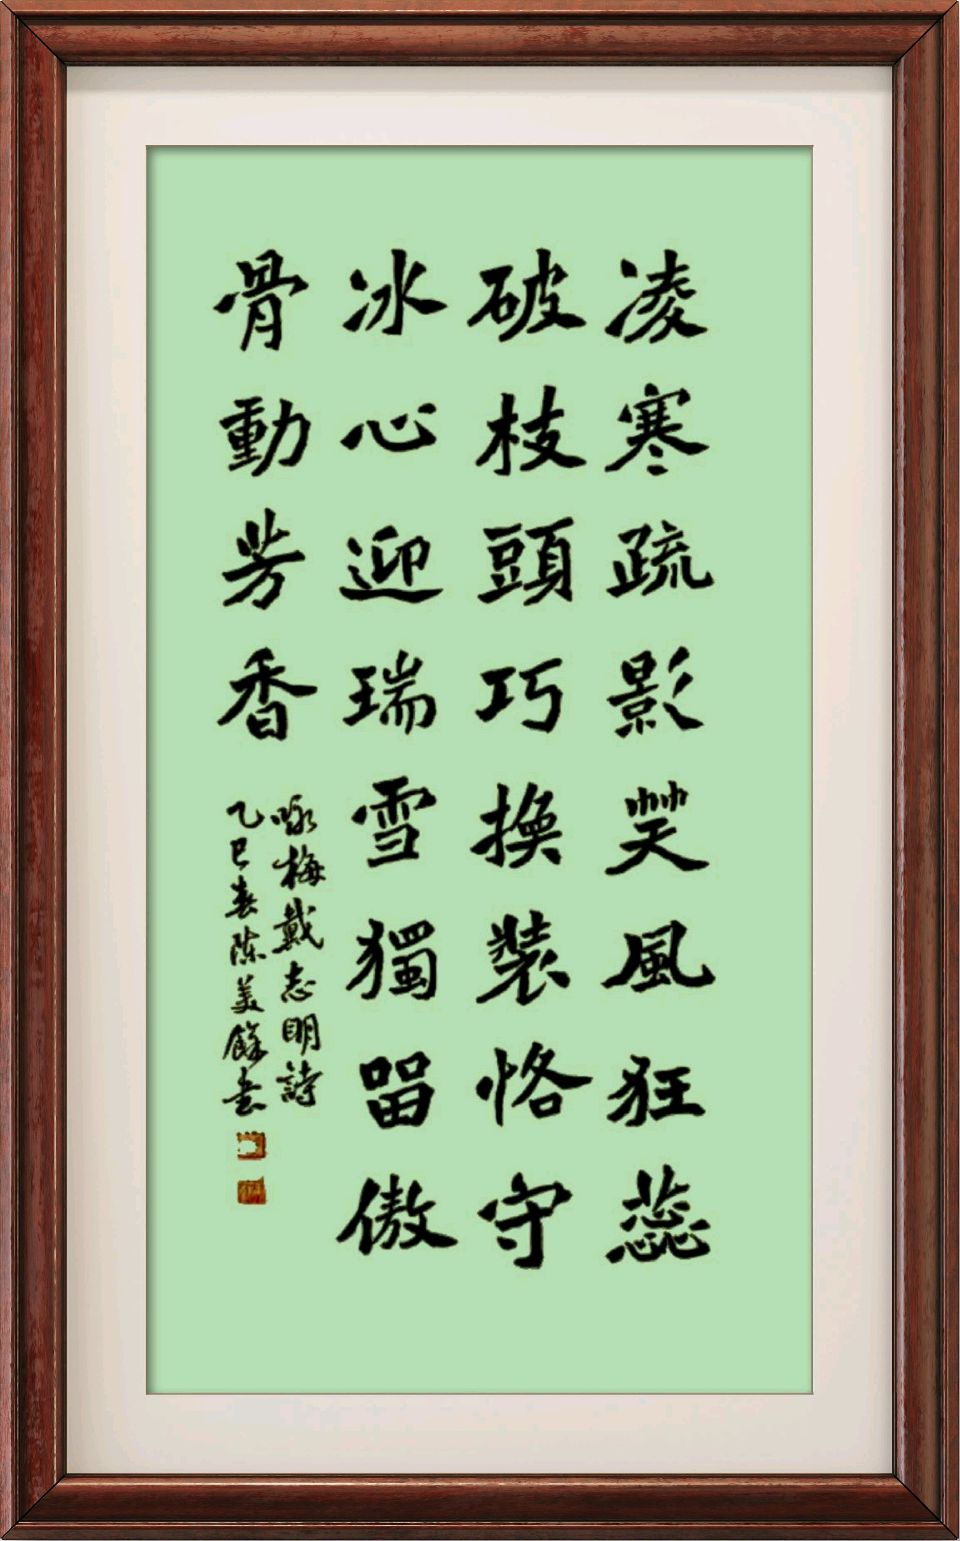 凌寒疏影笑風狂蕊
破枝頭巧換裝恪守
冰心迎瑞雪獨留傲
骨動芳香
咏梅戴志明詩
乙巳春陈美餘書